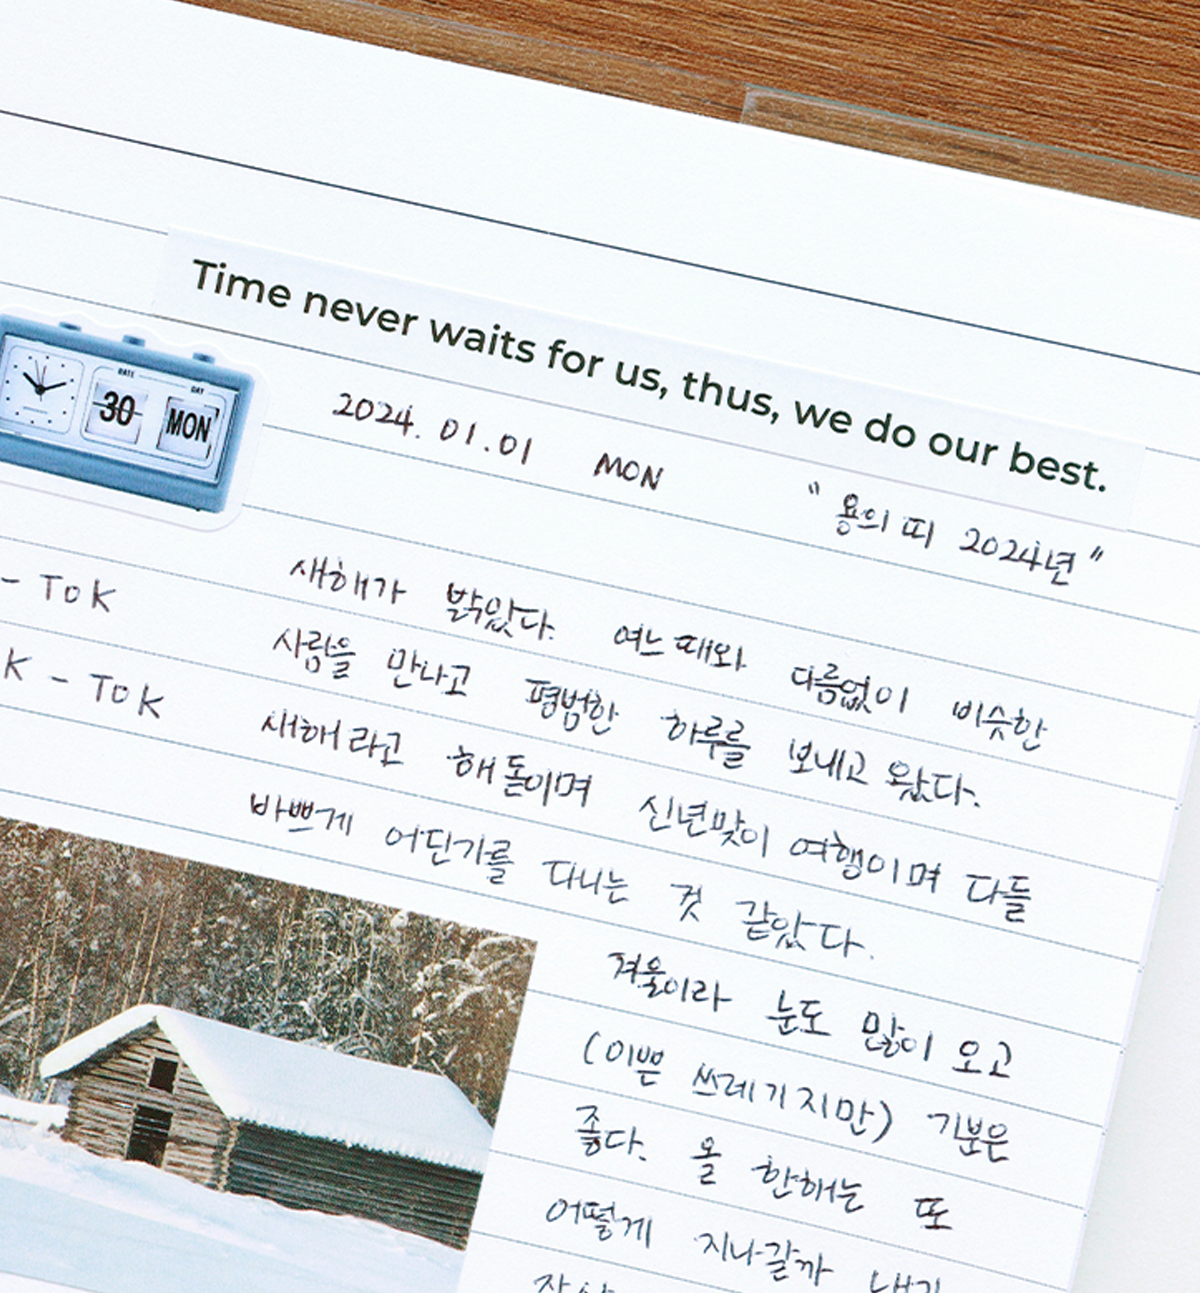 Time never waits for us, thus, we do our best.
DATE DAY
30 MON
2024. 01. 01 MON
" 용의 띠 2024년 "
- TOK
K - TOK
새해가 밝았다. 여느때와 다름없이 비슷한
사람을 만나고 평범한 하루를 보내고 왔다.
새해라고 해돋이며 신년맞이 여행이며 다들
바쁘게 어딘가를 다니는 것 같았다.
겨울이라 눈도 많이 오고
(이쁜 쓰레기지만) 기분은
좋다. 올 한해는 또
어떻게 지나갈까